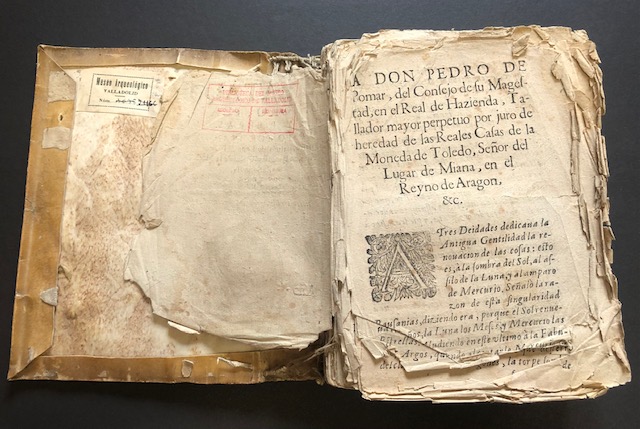 Museo Arqueológico
VALLADOLID
Núm.
A DON PEDRO DE
Pomar, del Consejo de su Mages-
tad, en el Real de Hazienda, Ta-
llador mayor perpetuo por juro de
heredad de las Reales Casas de la
Moneda de Toledo, Señor del
Lugar de Miana, en el
Reyno de Aragon,
&c.
A Tres Deidades dedicaua la
Antigua Gentilidad la re-
nouacion de las cosas: esto
es, à la sombra del Sol, al as-
silo de la Luna, y al amparo
de Mercurio. Señalò la ra-
zon de esta singularidad
Pausanias, diziendo era, porque el Sol renue-
la Luna los Meses, y Mercurio las
Estrellas, aludiendo en este vltimo à la Fabu-
Argos,
la torpe
de